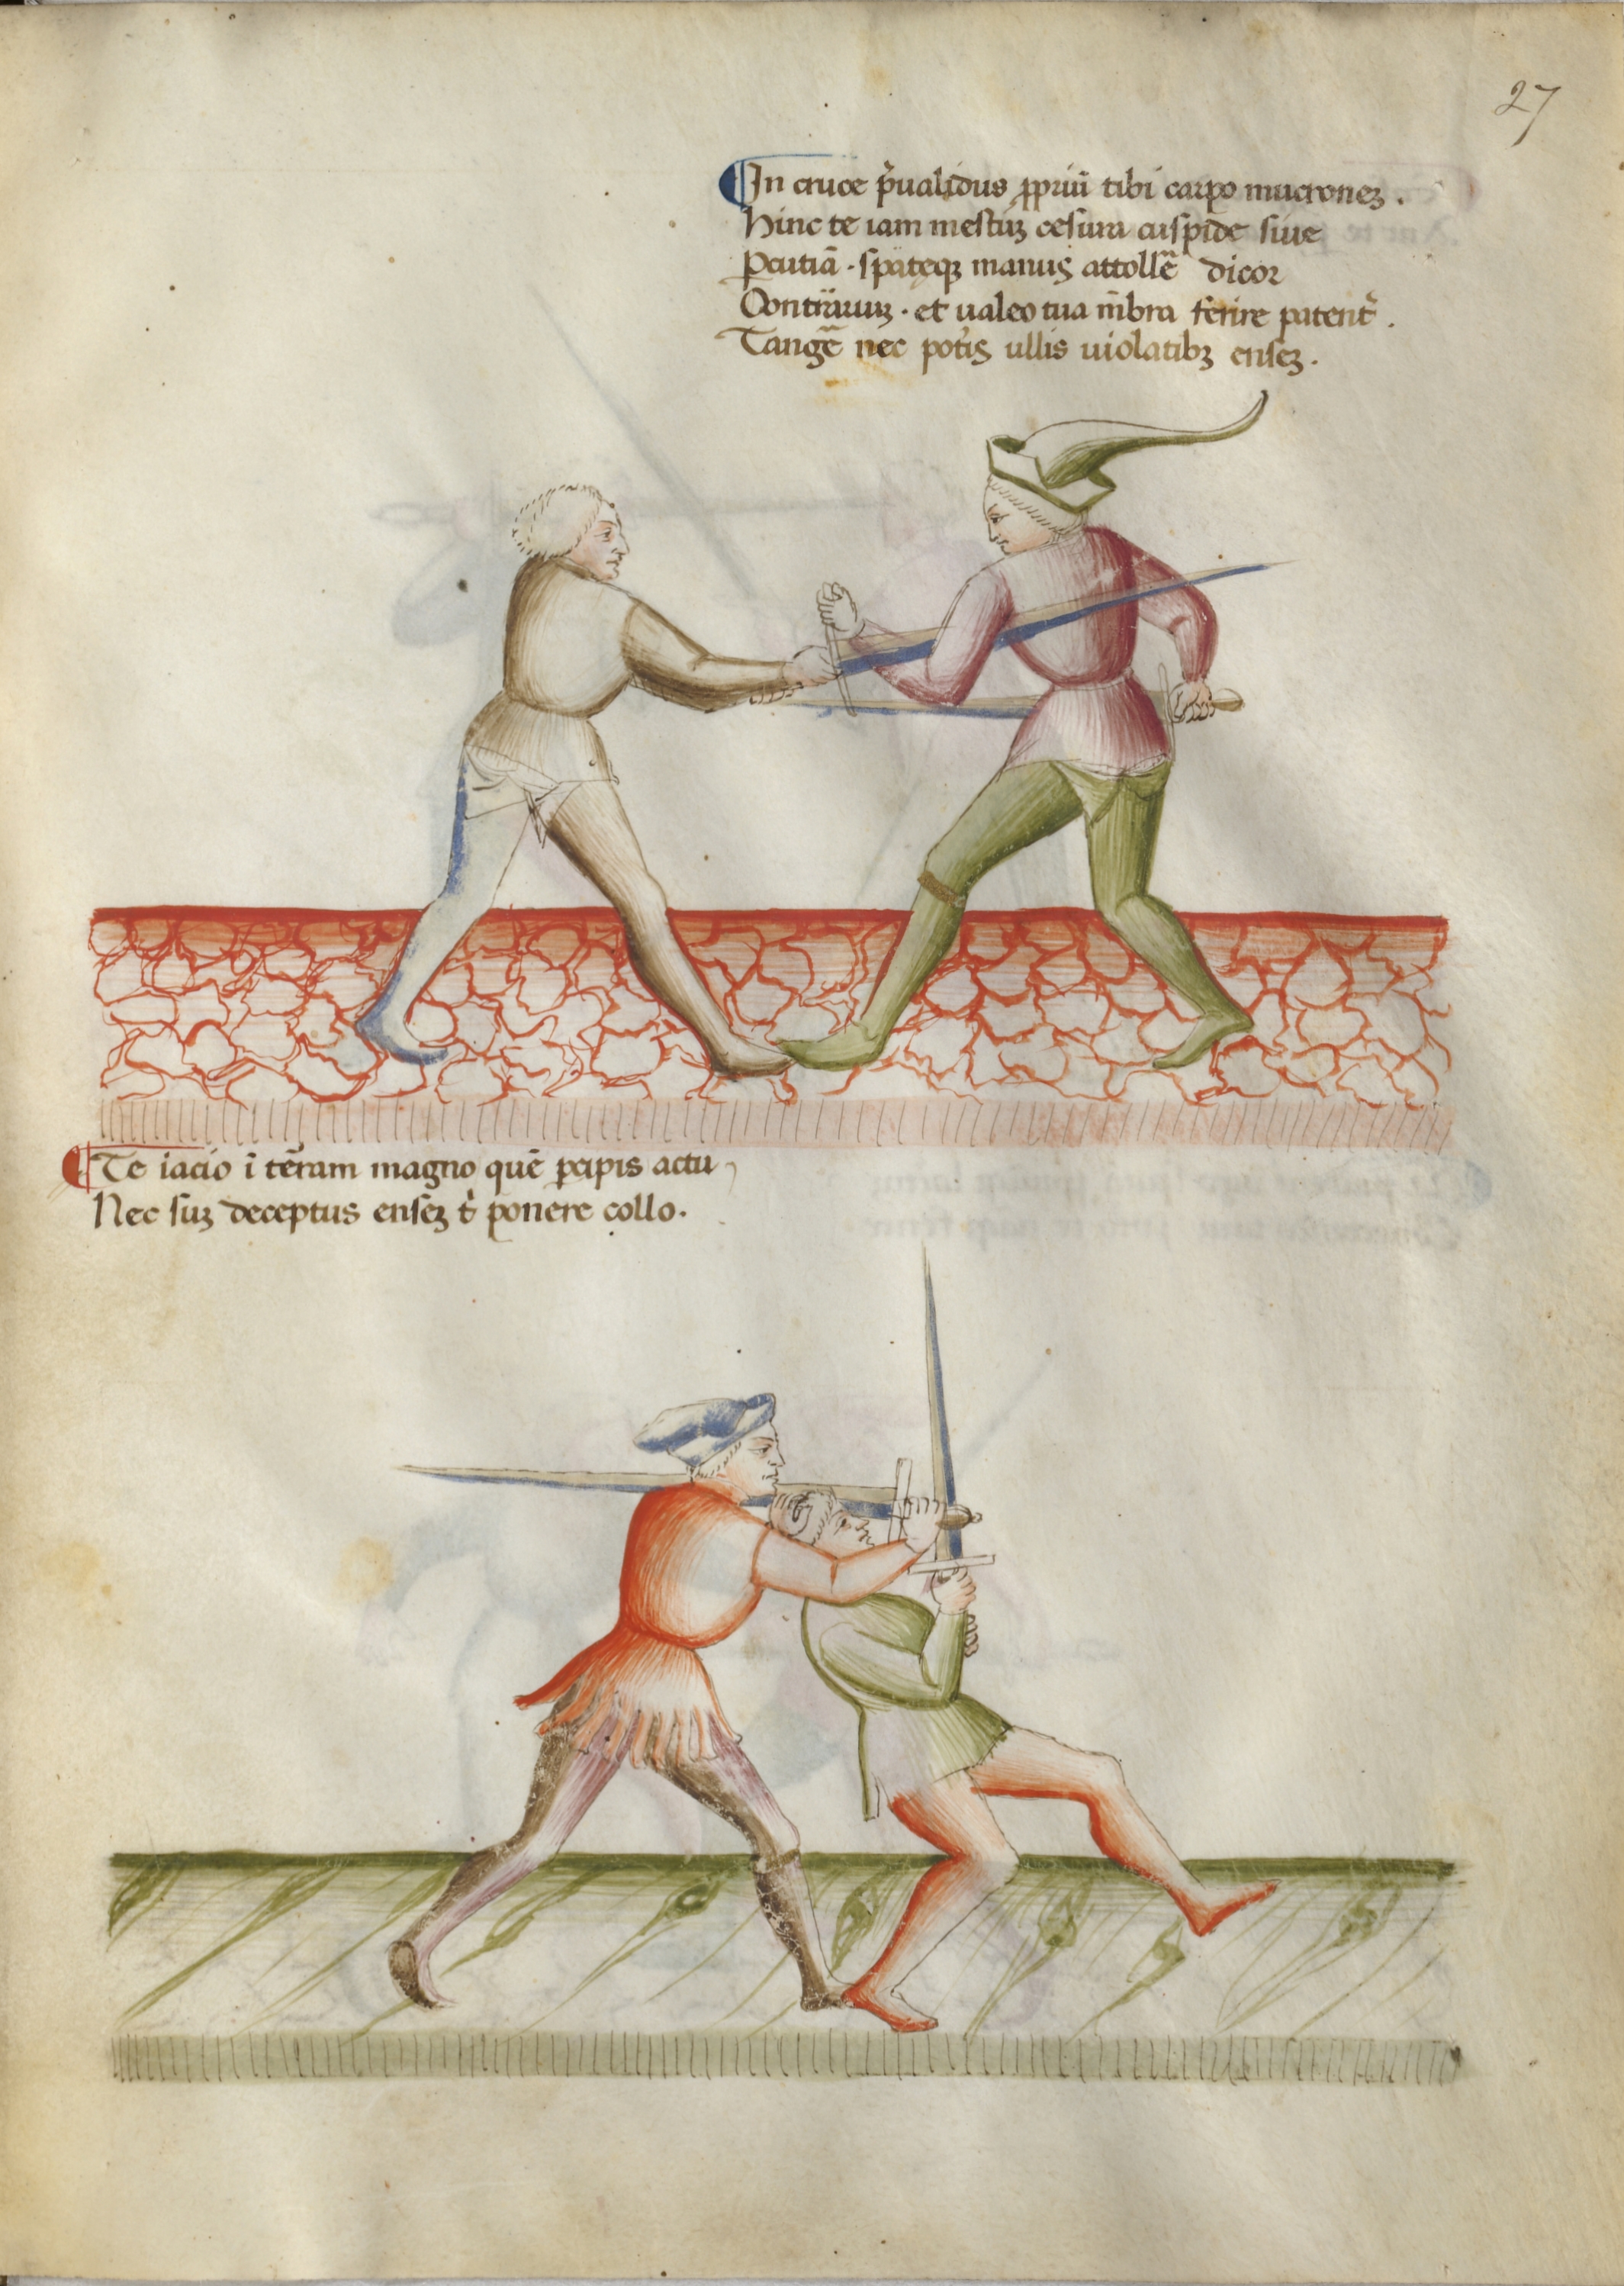 27
In cruce p̄ualidus ꝓpriū tibi carpo mucroneꝫ .
Hinc te iam mestuꝫ cesura cuspide siue
ꝑcutiā . spateqꝫ manus attollē dicor
Contrariuꝫ . et ualeo tua mēbra ferire patent̄ .
Tangē nec potis ullis uiolatibꝫ enseꝫ .
Te iacio ī terram magno quē ꝑcipis actu
Nec suꝫ deceptus enseꝫ t̄ ponere collo .